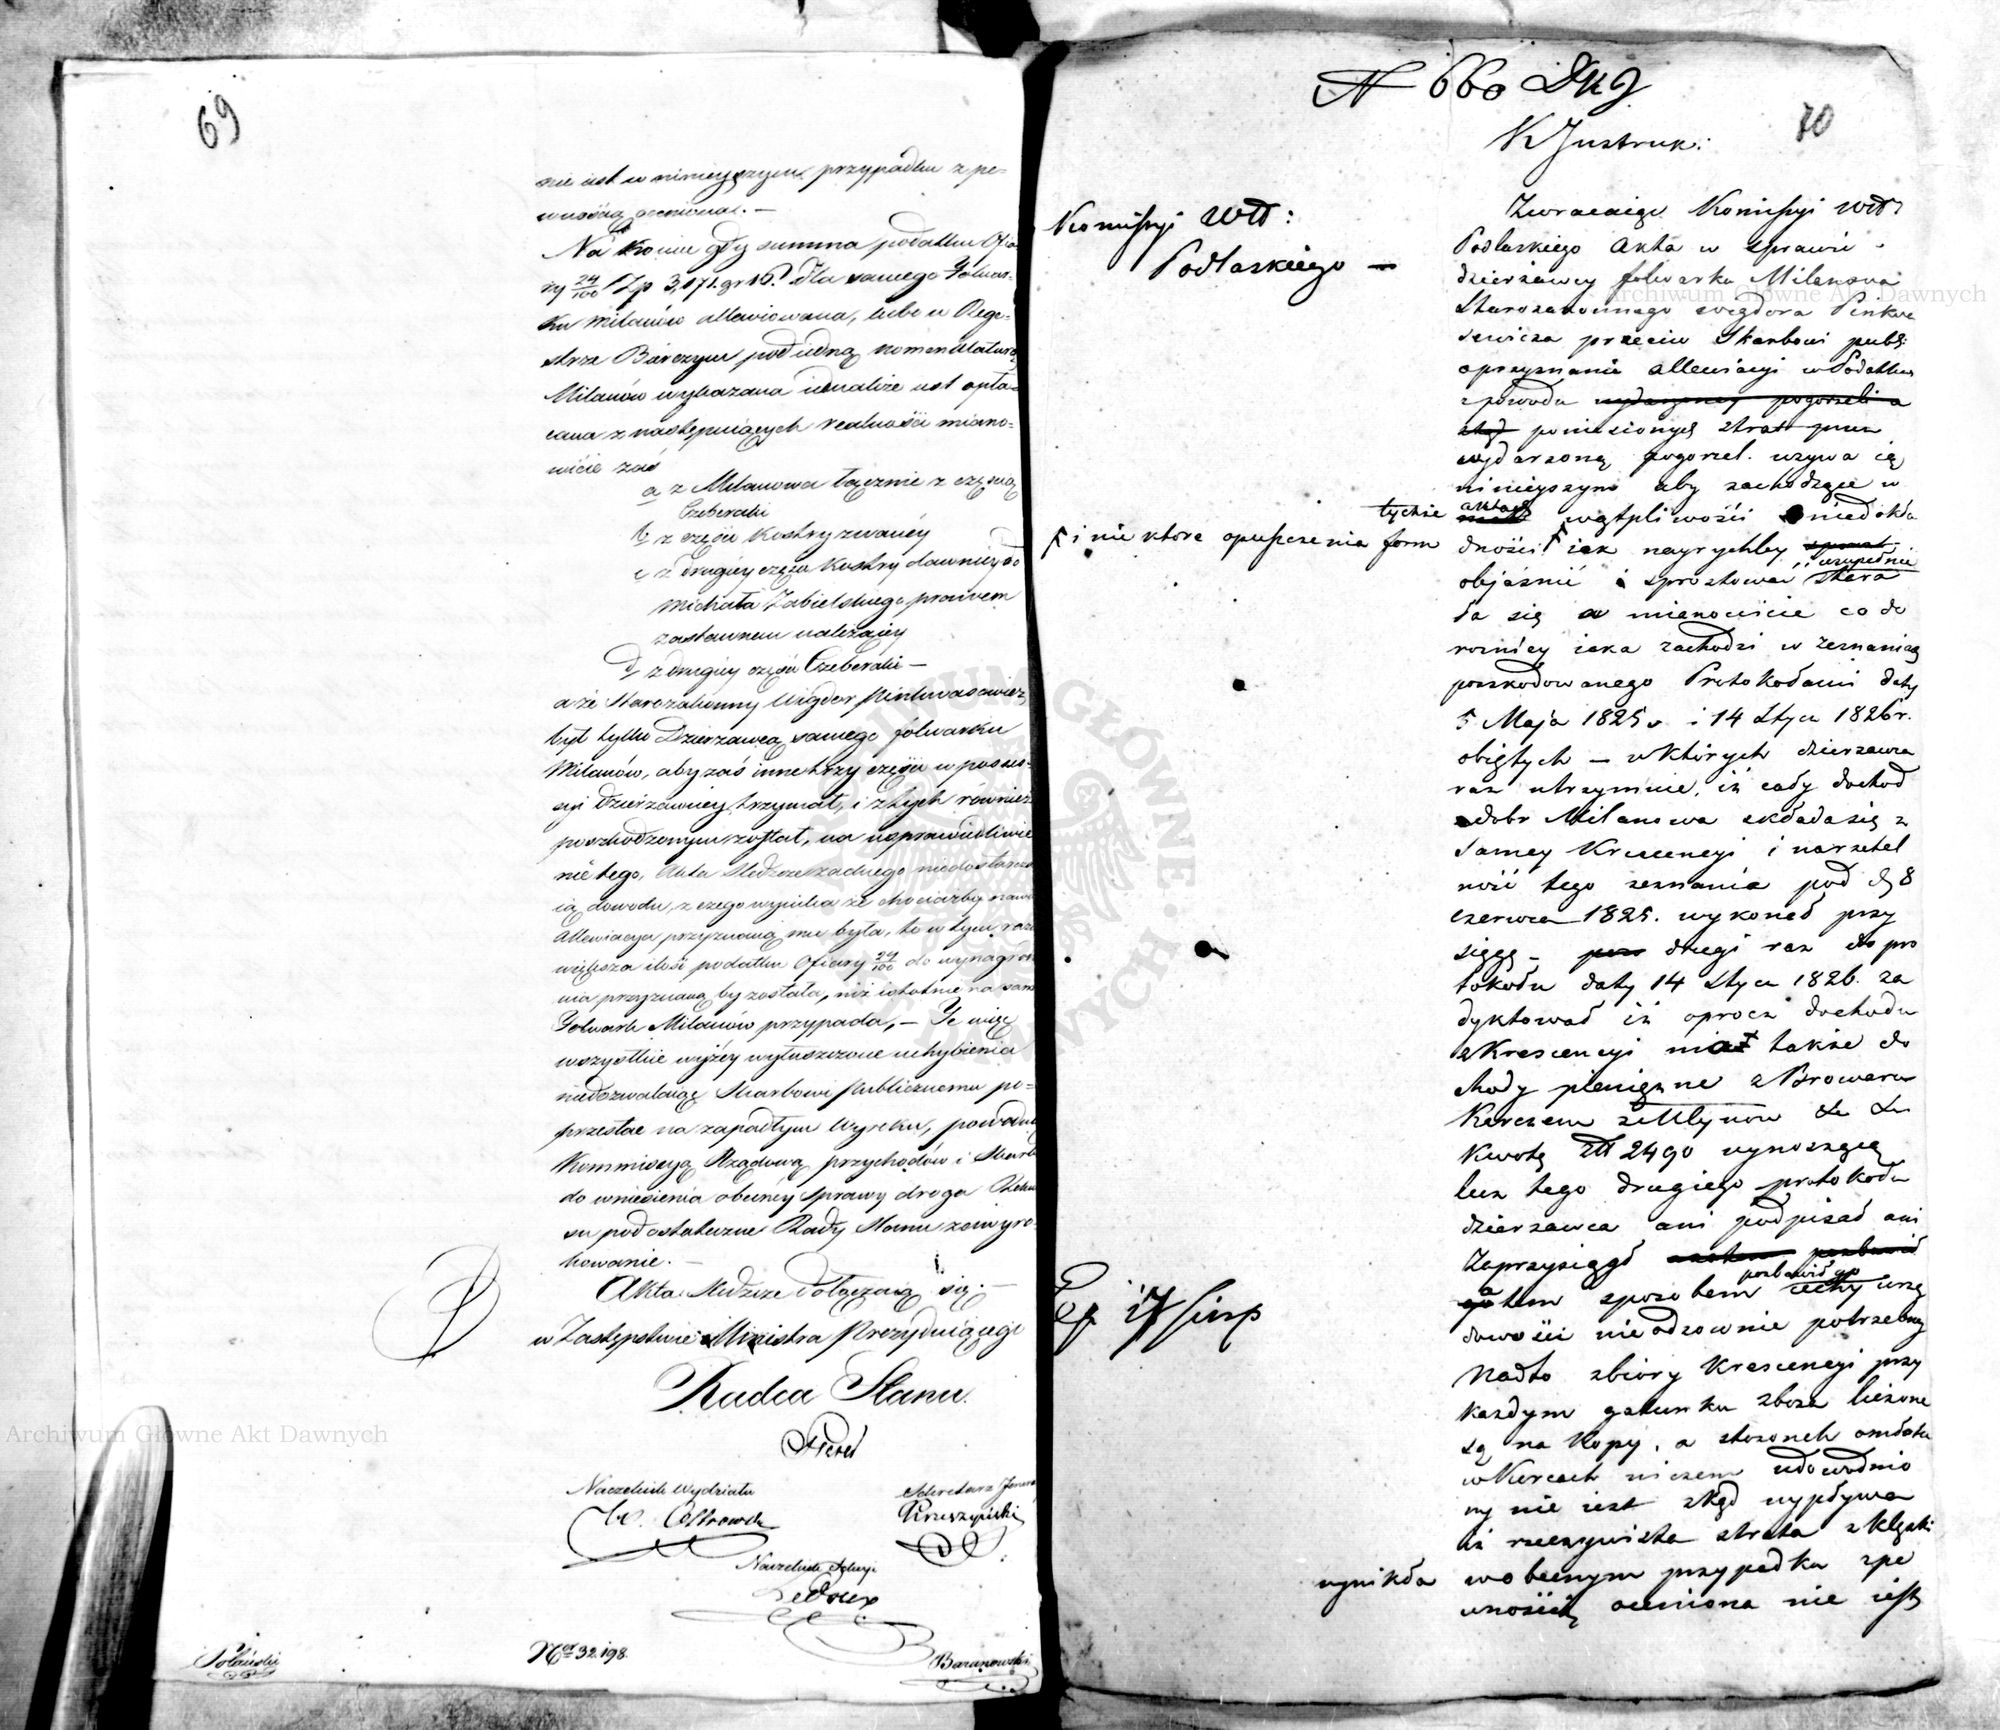 69
nie iest w ninieyszym przypadku z pe-
wnością oceniona. —
Na koniec gdy summa podatku Ofia
ry 24/100 Zp 3,171. gr 16. dla samego Folwar-
ku Milanów allewiowana, lubo w Rege-
strze Bierczym pod iedną nomenklaturą
Milanów wykazana idealnie iest opła-
cana z następuiących realności miano-
wicie zaś
a z Milanowa łącznie z częścią
Czeberaki
b z części Kostry zwaney
c z drugiey części Kostry dawniey do
Michała Zabielskiego prawem
zastawnem należącey
d z drugiey części Czeberaki —
a że Starozakonny Wigdor Pinkwasowicz
był tylko Dzierzawcą samego folwarku
Milanów, aby zaś inne trzy części w posses-
syi dzierzawney trzymał, i z tych również
poszkodzonym został, na usprawiedliwie
nie tego, Akta śledcze żadnego niedostarcza
ią dowodu, z czego wynika że chociażby nawet
Allewiacya przyznaną mu była, to w tym razie
większa ilość podatku Ofiary 24/100 do wynagrodze
nia przyznaną by została, niż istotnie na sam
Folwark Milanów przypada, — Te więc
wszystkie wyżey wyłuszczone uchybienia
niedozwalaiąc Skarbowi Publicznemu po-
przestać na zapadłym Wyroku, powoduią
Kommissyą Rządową przychodów i Skarbu
do wniesienia obecney sprawy drogą Rekur
su pod ostateczne Rady Stanu zawyro-
kowanie. —
Akta śledcze dołączaią się. —
w Zastępstwie Ministra Prezyduiącego
Radca Stanu.
Naczelnik Wydziału
Sekretarz Jener
W. Ostrowski
Kruszyński
Naczelnik Sekcyi
Ledoux
Baranowski
Solański
Nro 32198
N 660 DKJ
70
K Instruk:
Komissyi Wtt:
Podlaskiego —
Zwracaiąc Komissyi Wtt
Podlaskiego Akta w sprawie
dzierżawcy folwarku Milanowa
Starozakonnego Wigdora Pinkwa
sewicza przeciw Skarbowi publ:
o przyznanie allewiacyi w Podatku
z powodu wydarzoney pogorzeli a
ztąd poniesionych strat przez
wydarzoną pogorzel. wzywa ią
ninieyszym aby zachodzące w
tychże aktach wątpliwości i niedokła
i niektóre opuszczenia form dności iak nayrychley
zupełnie
objaśnić i sprostować stara
ła się a mianowicie co do
rożnicy iaka zachodzi w zeznaniach
poszkodowanego Protokołami daty
5 Maja 1825 r. i 14 Stycz 1826 r.
obiętych — w których dzierzawca
raz utrzymuie, iż cały dochod
z dobr Milanowa składa się z
samey Krescencyi i na rzetel
ność tego zeznania pod d 8
czerwca 1825. wykonał przy
sięgę — drugi raz do pro
tokołu daty 14 Stycz 1826. za
dyktował iż oprocz dochodu
z Krescencyi miał także do
chody pieniężne z Browaru
Karczem z Młynow &c &c
Kwotę Złt 2490 wynoszące
lecz tego drugiego protokołu
dzierzawca ani podpisał ani
zaprzysiągł
pozbawił go
a tem sposobem cechy urzę
dowości nieodzownie potrzebney
Nadto zbiory Krescencyi przy
każdym gatunku zboża liczone
są na Kopy, a stosonek omłotu
w Korcach niczem udowodnio
ny nie iest zkąd wypływa
iż rzeczywista strata z klęski
wynikła w obecnym przypadku z pe
wnością oceniona nie iest
Ex 17 Sierp